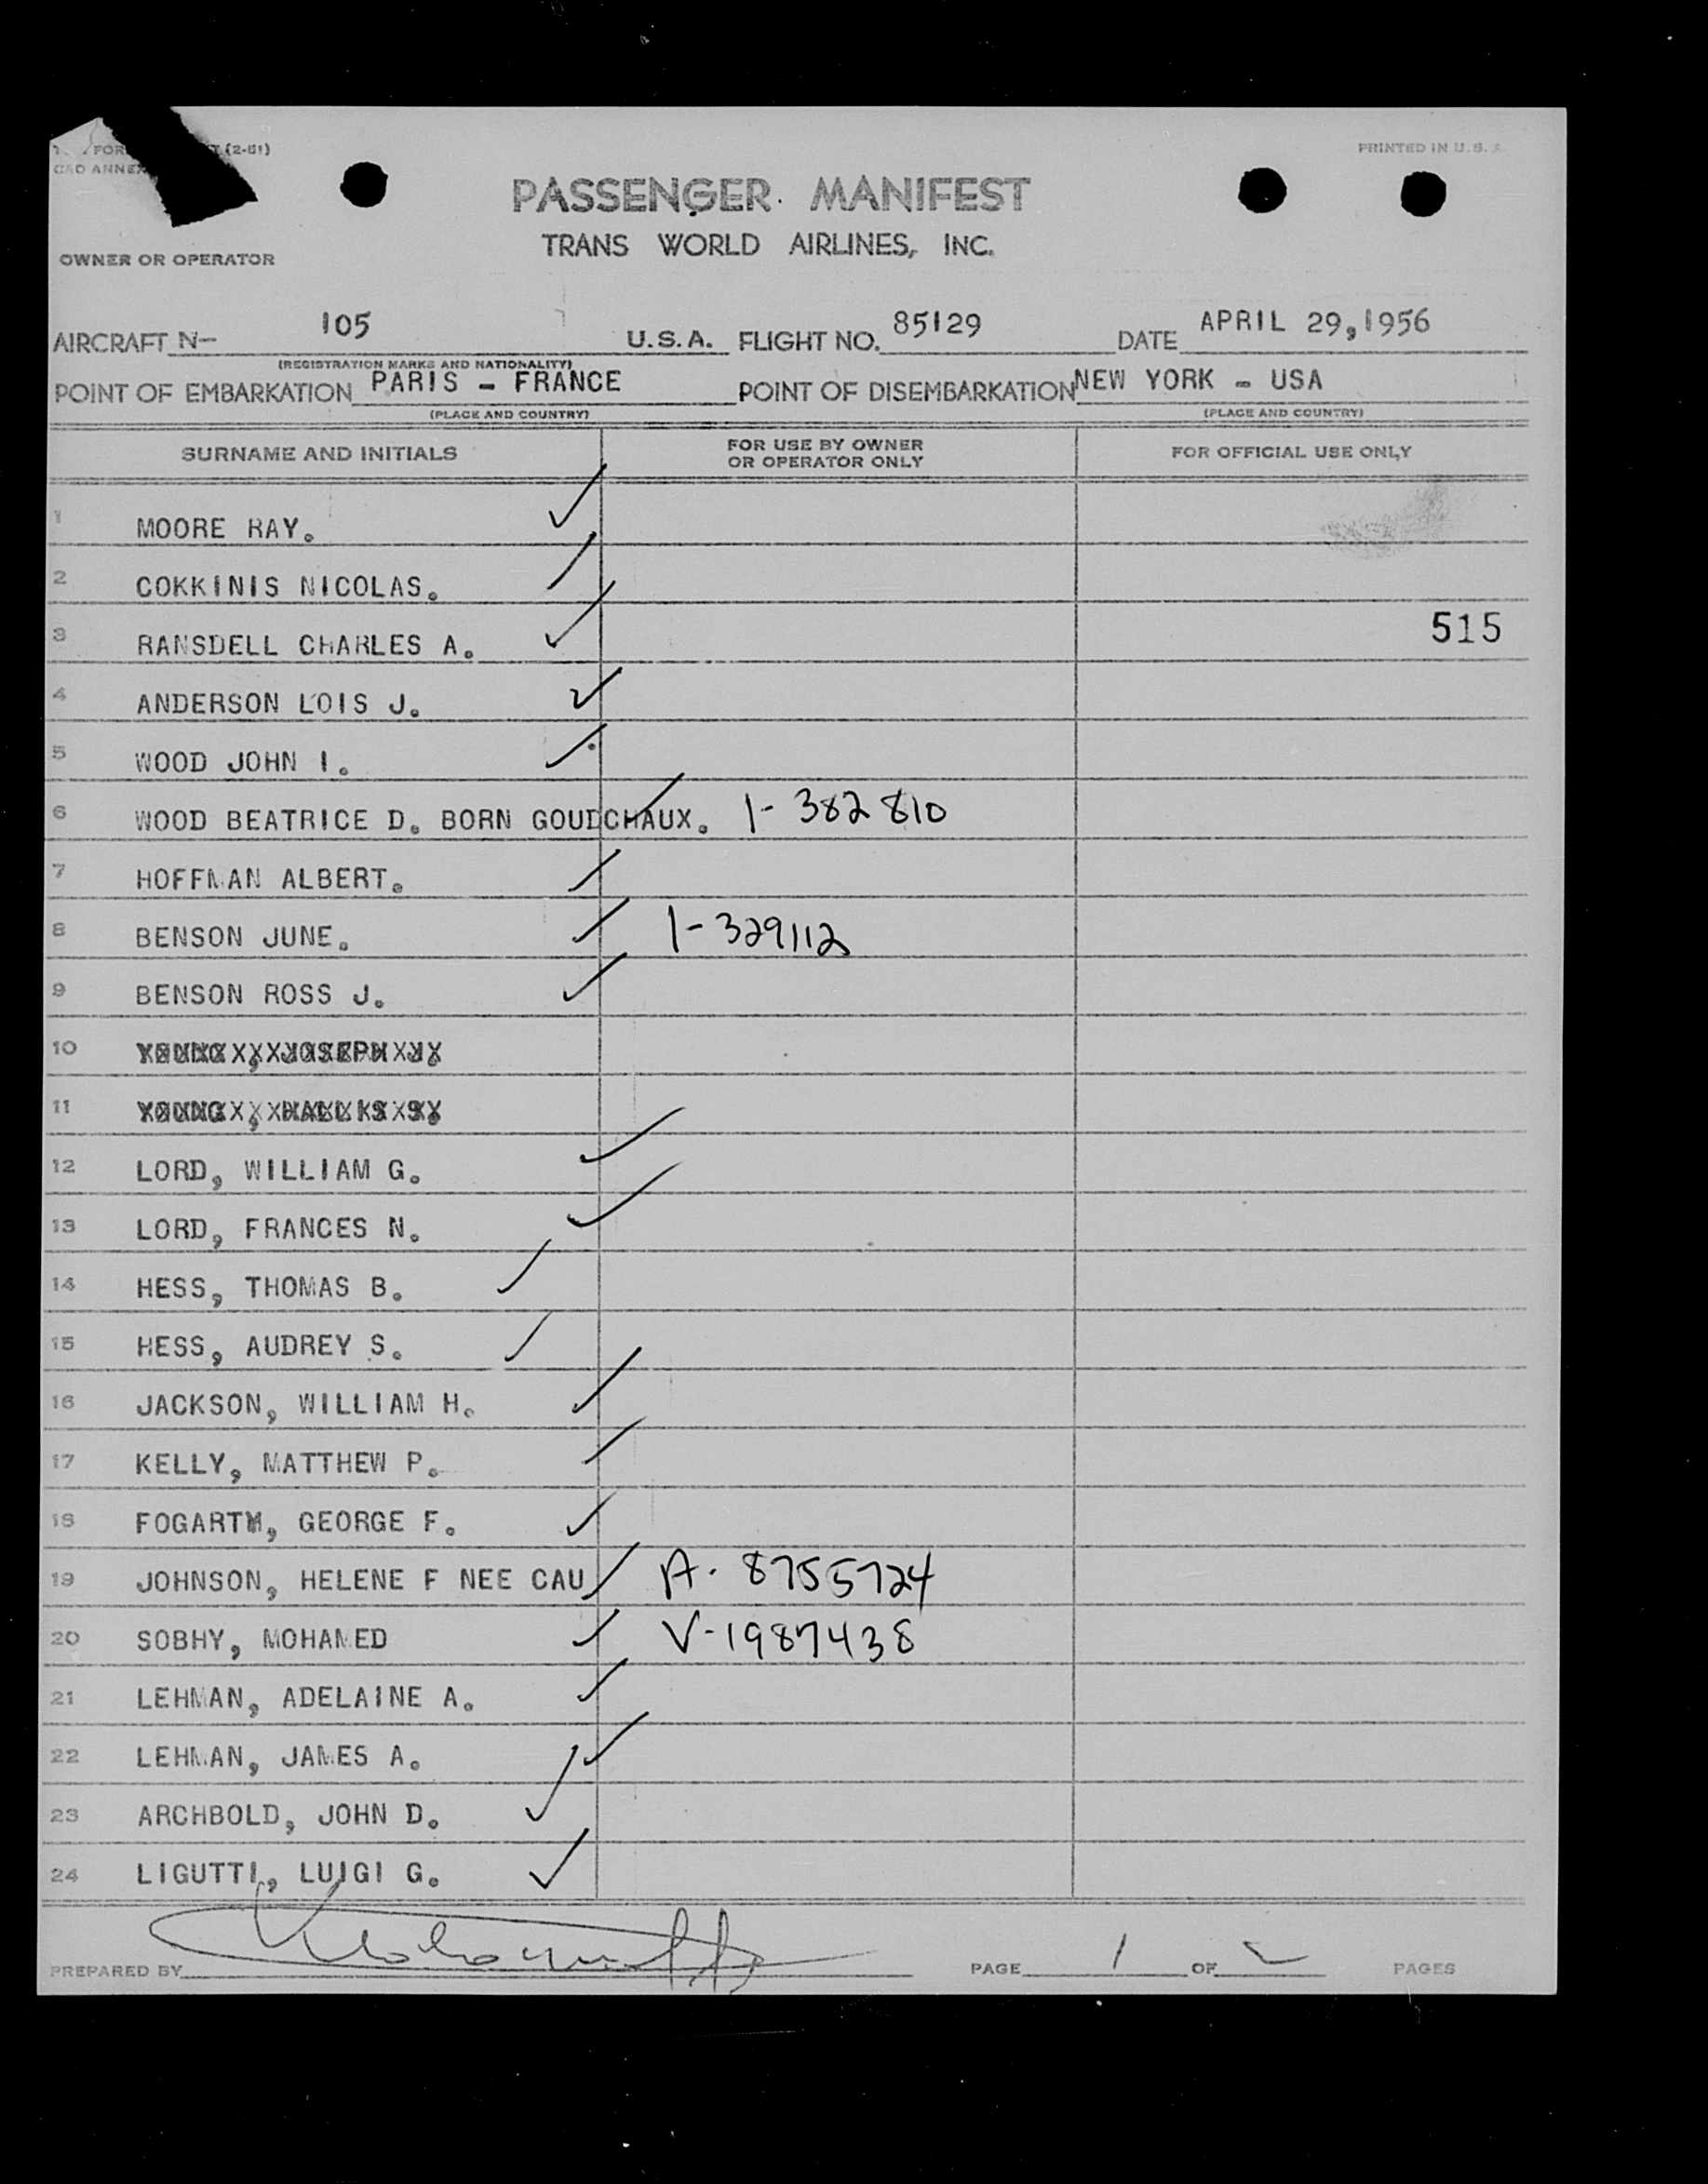 (2-51)
PRINTED IN U.S.A.
PASSENGER MANIFEST
TRANS WORLD AIRLINES, INC.
OWNER OR OPERATOR
AIRCRAFT N- 105 U.S.A. FLIGHT NO. 85129 DATE APRIL 29,1956
(REGISTRATION MARKS AND NATIONALITY)
POINT OF EMBARKATION PARIS - FRANCE POINT OF DISEMBARKATION NEW YORK - USA
(PLACE AND COUNTRY) (PLACE AND COUNTRY)
SURNAME AND INITIALS FOR USE BY OWNER OR OPERATOR ONLY FOR OFFICIAL USE ONLY
1 MOORE RAY.
2 COKKINIS NICOLAS.
3 RANSDELL CHARLES A. 515
4 ANDERSON LOIS J.
5 WOOD JOHN I.
6 WOOD BEATRICE D. BORN GOUDCHAUX. 1-382810
7 HOFFMAN ALBERT.
8 BENSON JUNE. 1-329112
9 BENSON ROSS J.
10 YOUNG, JOSEPH
11 YOUNG
12 LORD, WILLIAM G.
13 LORD, FRANCES N.
14 HESS, THOMAS B.
15 HESS, AUDREY S.
16 JACKSON, WILLIAM H.
17 KELLY, MATTHEW P.
18 FOGARTY, GEORGE F.
19 JOHNSON, HELENE F NEE CAU A. 8755724
20 SOBHY, MOHAMED V-1987438
21 LEHMAN, ADELAINE A.
22 LEHMAN, JAMES A.
23 ARCHBOLD, JOHN D.
24 LIGUTTI, LUIGI G.
PREPARED BY PAGE 1 OF 2 PAGES